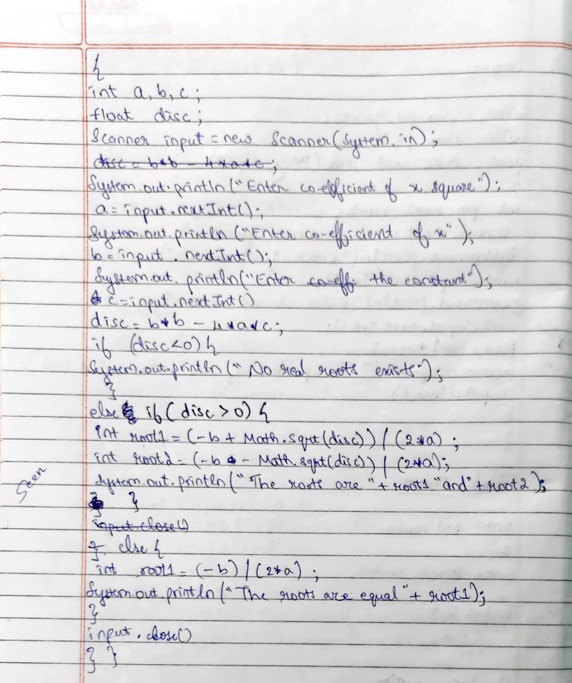 {
int a, b, c ;
float disc ;
Scanner input = new Scanner(System.in) ;
disc = b*b - 4*a*c ;
System.out.println("Enter co-efficient of x square") ;
a = input.nextInt() ;
System.out.println("Enter co-efficient of x") ;
b = input.nextInt() ;
System.out.println("Enter co-effi the constant") ;
c = input.nextInt()
disc = b*b - 4*a*c ;
if (disc<0) {
System.out.println(" No real roots exists") ;
}
else if ( disc > 0) {
int root1 = (-b + Math.sqrt(disc)) / (2*a) ;
int root2 = (-b - Math.sqrt(disc)) / (2*a) ;
System.out.println(" The roots are "+ root1 "and" + root2 ) ;
Seen
} }
input.close()
} else {
int root1 = (-b) / (2*a) ;
System.out.println(" The roots are equal "+ root1) ;
}
input.close()
} }